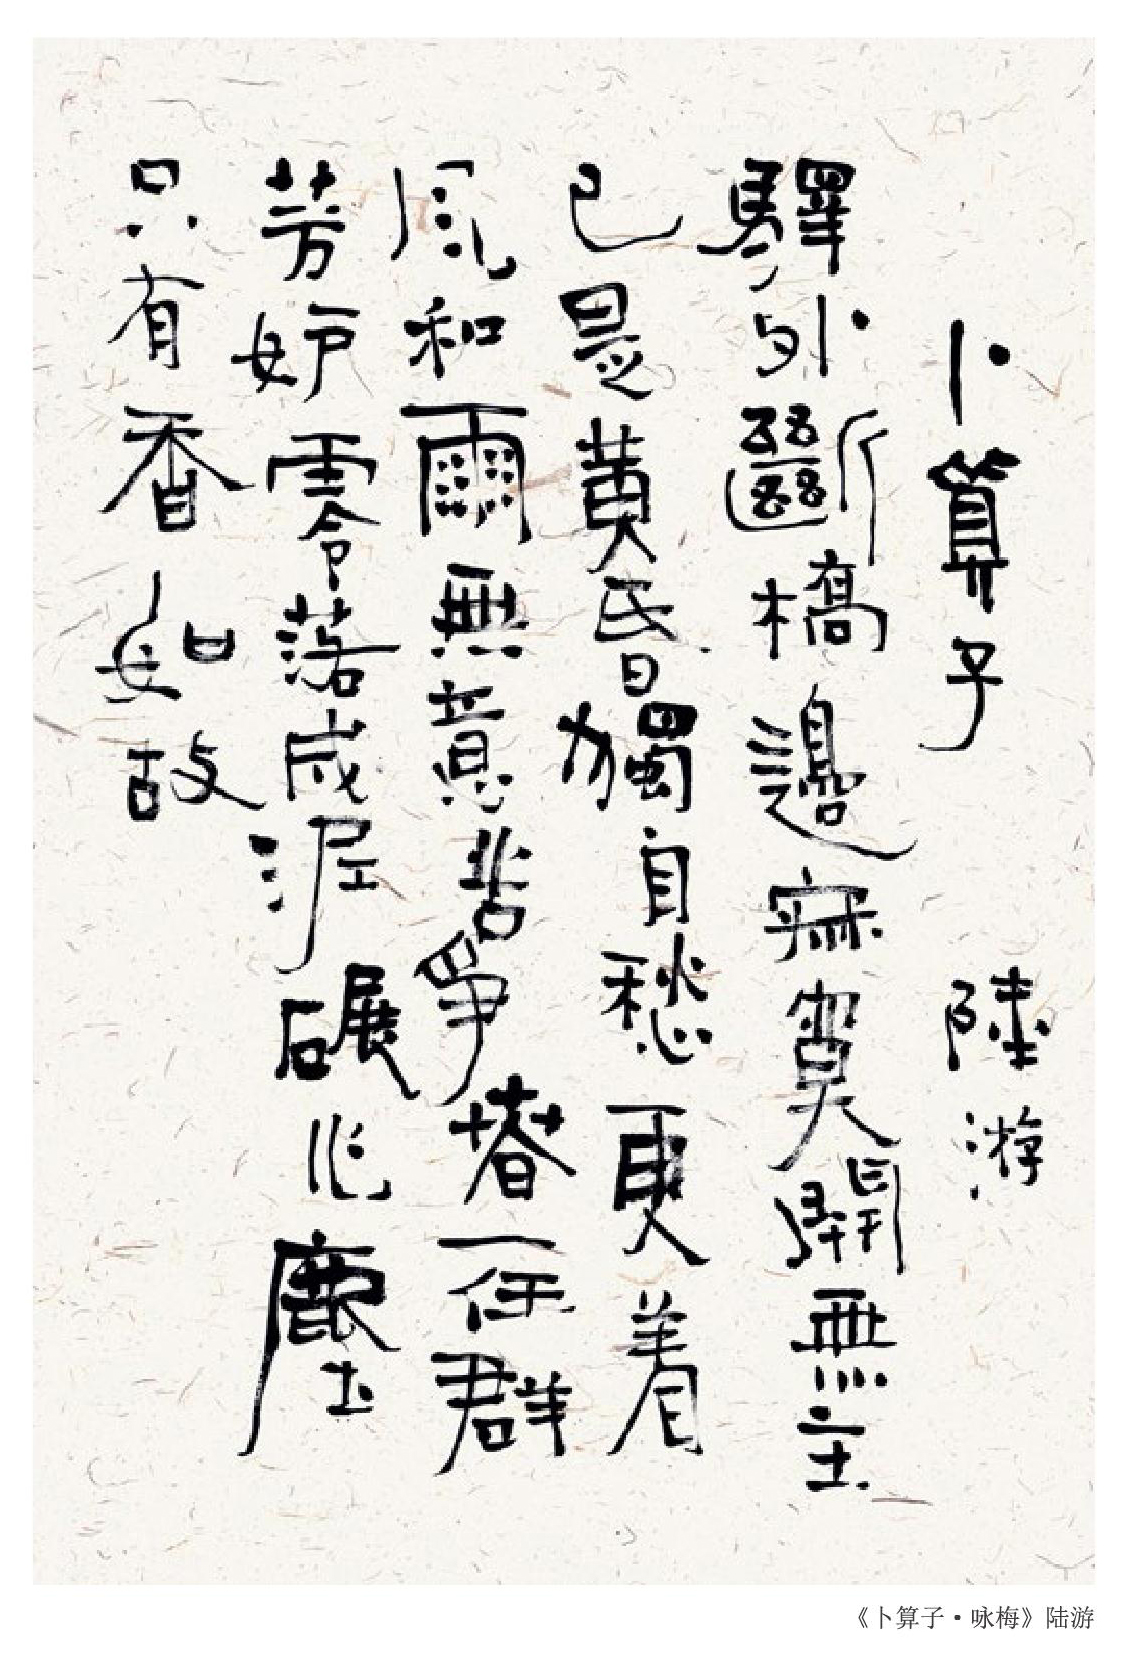 卜算子 陸游
驛外斷橋邊寂寞開無主
已是黃昏獨自愁更着
風和爾無意苦爭春一任群
芳妒零落成泥碾作塵
只有香如故
《卜算子·咏梅》陆游